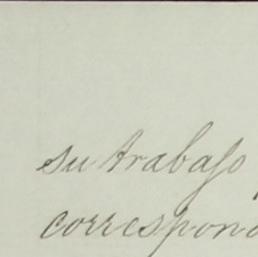 su trabajo
correspond